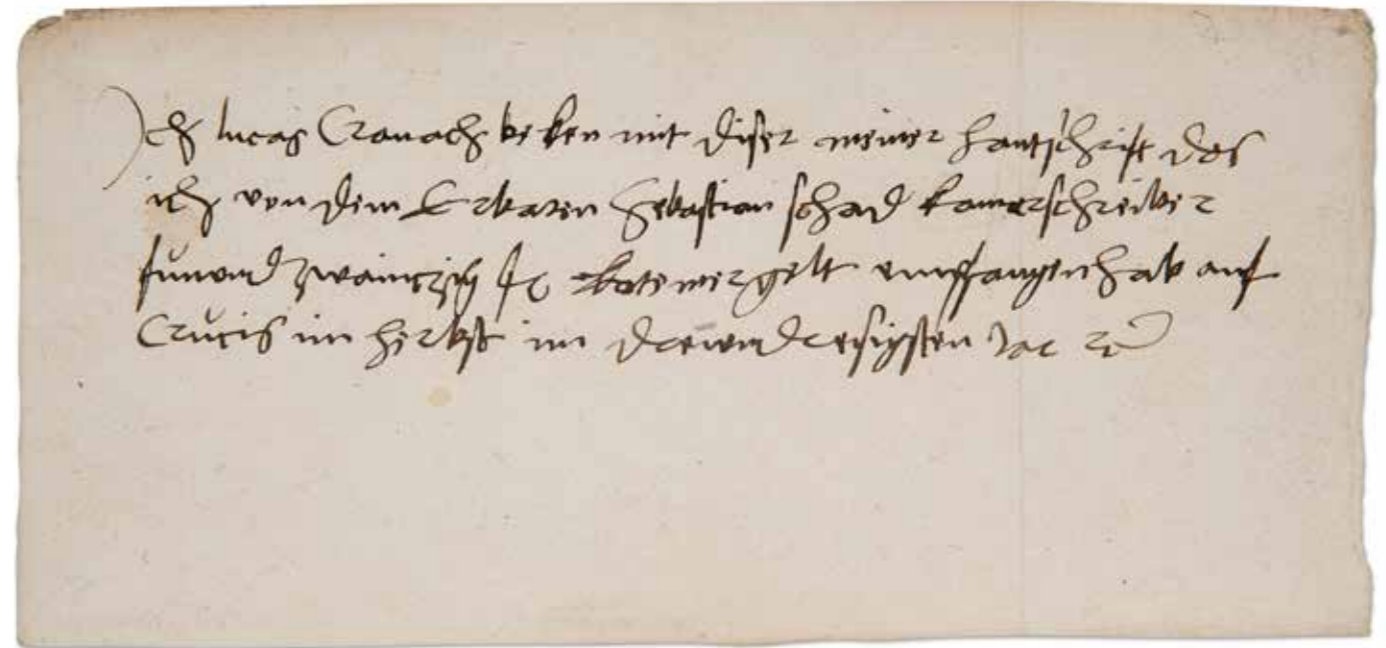 Ich lucas Cranach beken mit diser meiner hantschrift das
ich von dem Erbaren Sebastian schad kamerschreiber
funvnd zwainczig fl kotemergelt empfangen hab auf
Crucis im herbst im drewvndresigsten Jar